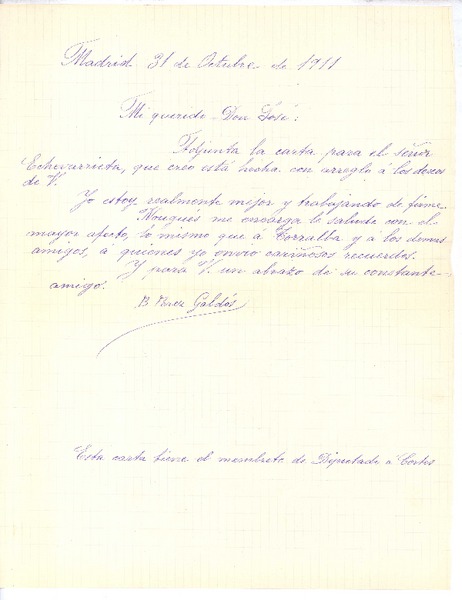 Madrid 31 de Octubre de 1911
Mi querido Don José:
Adjunta la carta para el señor
Echevarrieta, que creo está hecha con arreglo á los deseos
de V.
Yo estoy realmente mejor y trabajando de firme.
Nougués me encarga le salude con el
mayor afecto, lo mismo que á Torralba y á los demas
amigos, á quienes yo envio cariñosos recuerdos.
Y para V. un abrazo de su constante
amigo.
B Perez Galdós
Esta carta tiene el membrete de Diputado a Cortes